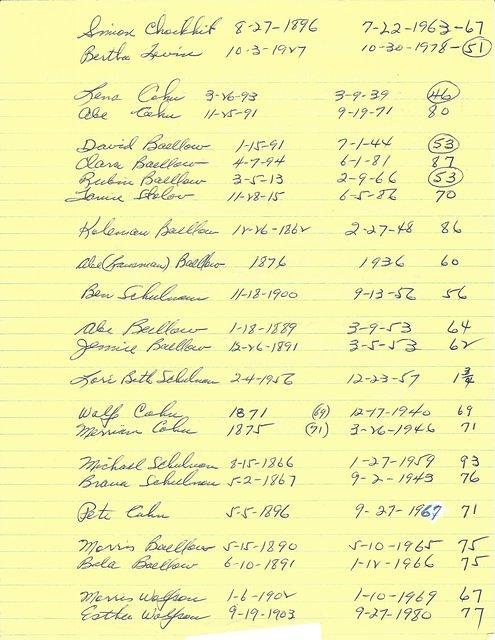 Simon Chockhit 8-27-1896 7-22-1963-67
Bertha Levin 10-3-1927 10-30-1978-51
Lena Cohn 3-26-93 3-9-39 46
Abe Cohn 11-25-91 9-19-71 80
David Baellow 1-15-91 7-1-44 53
Clara Baellow 4-7-94 6-1-81 87
Rubin Baellow 3-5-13 2-9-66 53
11-28-15 6-5-86 70
Koleman Baellow 12-26-1862 2-27-48 86
Abe Baellow 1876 1936 60
Ben Schulman 11-18-1900 9-13-56 56
Abe Baellow 1-18-1889 3-9-53 64
Jennie Baellow 12-26-1891 3-5-53 62
Lori Beth Schulman 2-4-1956 12-23-57 1 3/4
Wolf Cohn 1871 (69) 12-17-1940 69
Merriam Cohn 1875 (71) 3-26-1946 71
Michael Schulman 8-15-1866 1-27-1959 93
Brana Schulman 5-2-1867 9-2-1943 76
Pete Cohn 5-5-1896 9-27-1967 71
Morris Baellow 5-15-1890 5-10-1965 75
Bela Baellow 6-10-1891 1-12-1966 75
Morris Wolfson 1-6-1902 1-10-1969 67
Esther Wolfson 9-19-1903 9-27-1980 77